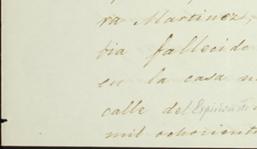 va Martinez,
bia fallecido
en la casa n
calle del Espiritu
mil ochocient